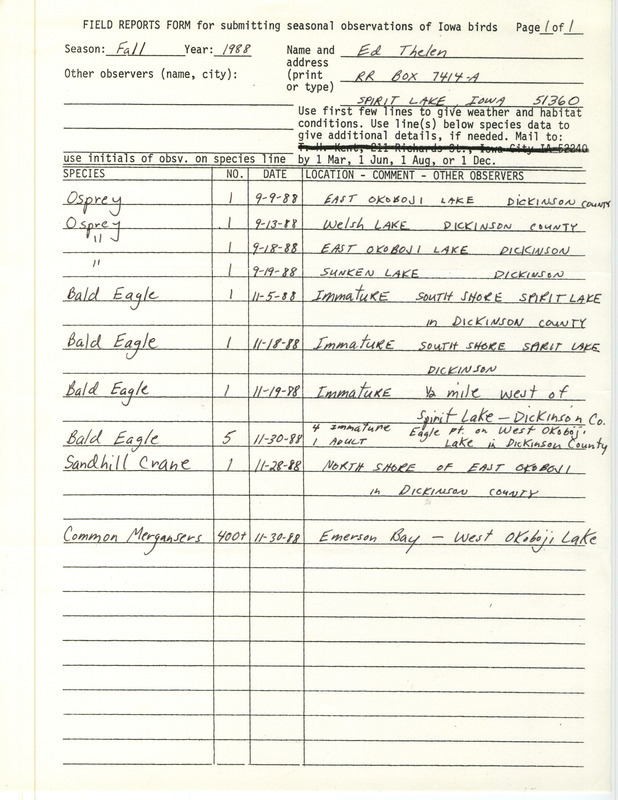 FIELD REPORTS FORM for submitting seasonal observations of Iowa birds Page 1 of 1
Season: Fall Year: 1988 Name and Ed Thelen
address
Other observers (name, city): (print RR BOX 7414-A
or type)
SPIRIT LAKE, IOWA 51360
Use first few lines to give weather and habitat
conditions. Use line(s) below species data to
give additional details, if needed. Mail to:
T. H. Kent, 211 Richards St., Iowa City IA 52240
use initials of obsv. on species line by 1 Mar, 1 Jun, 1 Aug, or 1 Dec.
SPECIES NO. DATE LOCATION - COMMENT - OTHER OBSERVERS
Osprey 1 9-9-88 EAST OKOBOJI LAKE DICKINSON COUNTY
Osprey 1 9-13-88 Welsh LAKE DICKINSON COUNTY
" 1 9-18-88 EAST OKOBOJI LAKE DICKINSON
" 1 9-19-88 SUNKEN LAKE DICKINSON
Bald Eagle 1 11-5-88 Immature SOUTH SHORE SPIRIT LAKE
in DICKINSON COUNTY
Bald Eagle 1 11-18-88 Immature SOUTH SHORE SPIRIT LAKE
DICKINSON
Bald Eagle 1 11-19-88 Immature 1/2 mile west of
Spirit Lake - Dickinson Co.
Bald Eagle 5 11-30-88 4 immature Eagle pt. on West Okoboji
1 ADULT Lake in Dickinson County
Sandhill Crane 1 11-28-88 NORTH SHORE OF EAST OKOBOJI
in DICKINSON COUNTY
Common Mergansers 400+ 11-30-88 Emerson Bay - West Okoboji Lake